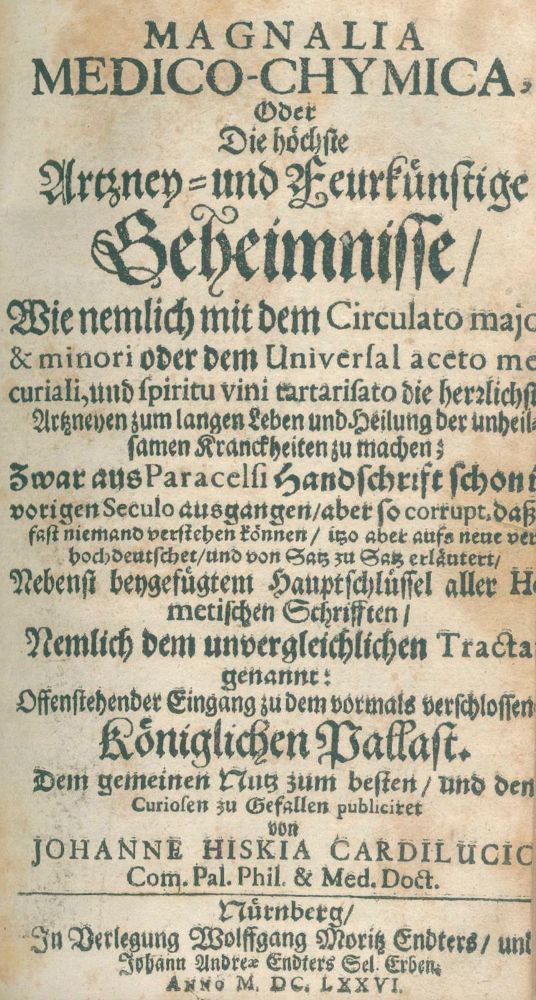 MAGNALIA
MEDICO-CHYMICA,
Oder
Die höchste
Artzney=und Feurkünstige
Geheimnisse/
Wie nemlich mit dem Circulato majo
& minori oder dem Universal aceto me
curiali, und spiritu vini tartarisato die herzlichst
Artzneyen zum langen Leben und Heilung der unheil=
samen Kranckheiten zu machen;
Zwar aus Paracelsi Handschrift schon i
vorigen Seculo ausgangen/aber so corrupt, daß
fast niemand verstehen können/ itzo aber aufs neue ver
hochdeutschet/und von Satz zu Satz erläutert/
Nebenst beygefügtem Hauptschlüssel aller He
metischen Schrifften/
Nemlich dem unvergleichlichen Tracta
genannt:
Offenstehender Eingang zu dem vormals verschlossen
Königlichen Pallast.
Dem gemeinen Nutz zum besten/ und den
Curiosen zu Gefallen publiciret
von
JOHANNE HISKIA CARDILUCIO
Com. Pal. Phil. & Med. Doct.
Nürnberg/
In Verlegung Wolffgang Moritz Endters/ und
Johann Andreæ Endters Sel. Erben.
ANNO M. DC. LXXVI.